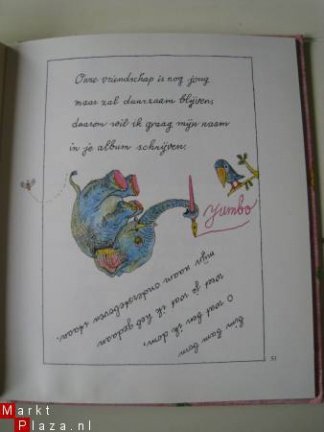 Onze vriendschap is nog jong
maar zal duurzaam blijven,
daarom wil ik graag mijn naam
in je album schrijven.
Yumbo
bim bam bom
O wat ben ik dom,
weet je wat ik heb gedaan
mijn naam ondersteboven staan.
51
Markt
Plaza.nl